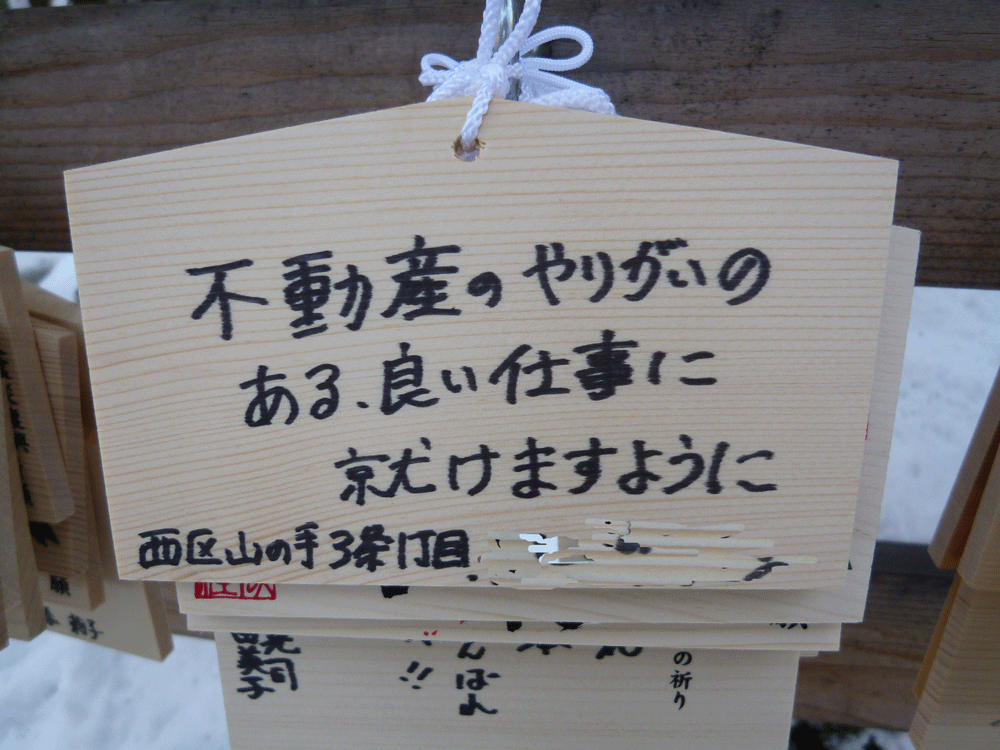 不動産のやりがいの
ある、良い仕事に
就けますように
西区山の手3条1丁目
の祈り
願